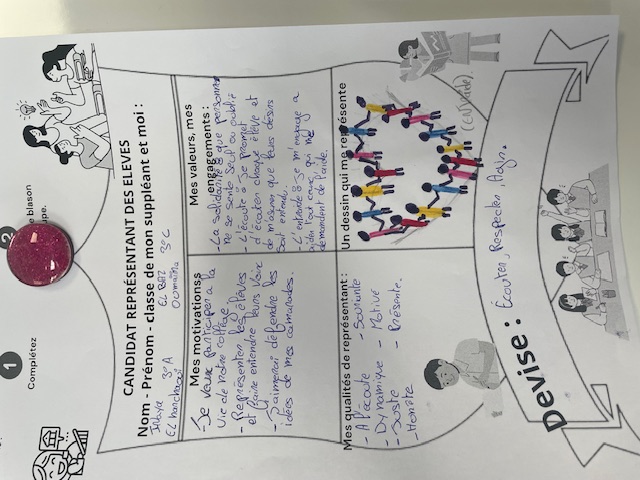 1
Complétez
2
e blason
pe.
CANDIDAT REPRÉSENTANT DES ELEVES
Nom - Prénom - classe de mon suppléant et moi :
3°A EL BAZ 3°C
Oumaima
Mes motivationss
- Je veux participer a la
vie de notre collège
- Représenter les élèves
et faire entendre leurs voix
- J'aimerai défendre les
idées de mes camarades.
Mes valeurs, mes
engagements :
- La solidarité : que personne
ne se sente seul ou oublié
- L'écoute : Je promet
d'écouter chaque élève et
de m'assurer que leurs désirs
soit entendu.
- L'entraide : Je m'engage a
aider tout ceux qui me
demandent de l'aide.
Mes qualités de représentant :
- A l'écoute - Souriante
- Dynamique - Motivé
- Juste - Présente.
- Honnête
Un dessin qui me représente
Devise : Écouter, Respecter, Agir.